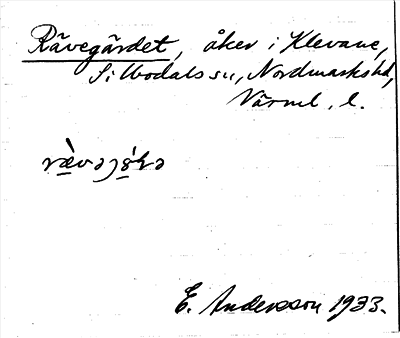 Rävegärdet, åker i Klevane,
Silbodals sn, Nordmarks hd,
Värml. l.
E. Andersson 1933.